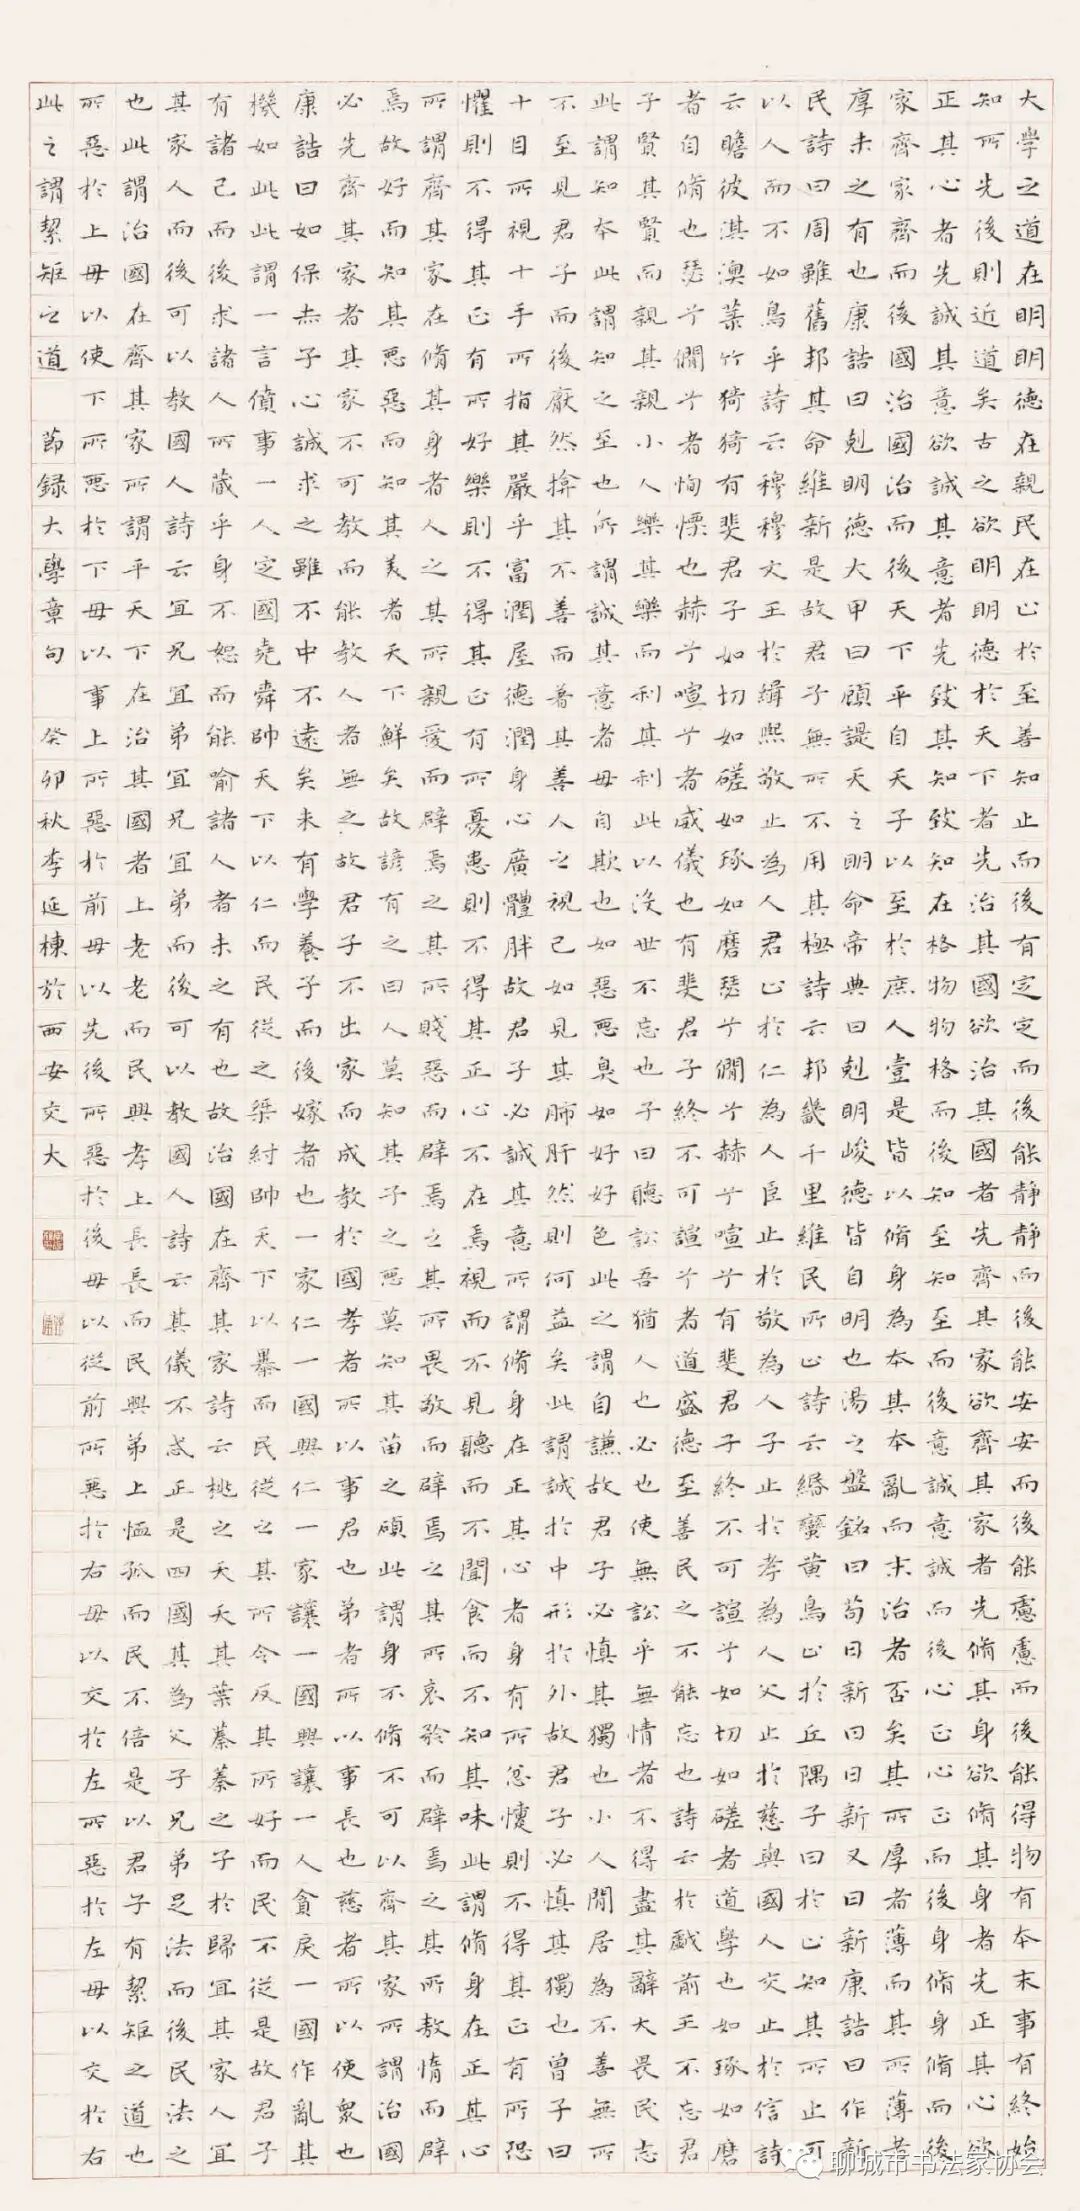 大學之道在明明德在親民在止於至善知止而後有定定而後能靜靜而後能安安而後能慮慮而後能得物有本末事有終始
知所先後則近道矣古之欲明明德於天下者先治其國欲治其國者先齊其家欲齊其家者先脩其身欲脩其身者先正其心欲
正其心者先誠其意欲誠其意者先致其知致知在格物物格而後知至知至而後意誠意誠而後心正心正而後身脩身脩而後
家齊家齊而後國治國治而後天下平自天子以至於庶人壹是皆以脩身為本其本亂而末治者否矣其所厚者薄而其所薄者
厚未之有也康誥曰剋明德大甲曰顧諟天之明命帝典曰剋明峻德皆自明也湯之盤銘曰苟日新日日新又日新康誥曰作新
民詩曰周雖舊邦其命維新是故君子無所不用其極詩云邦畿千里維民所止詩云緡蠻黃鳥止於丘隅子曰於止知其所止可
以人而不如鳥乎詩云穆穆文王於緝熙敬止為人君止於仁為人臣止於敬為人子止於孝為人父止於慈與國人交止於信詩
云瞻彼淇澳菉竹猗猗有斐君子如切如磋如琢如磨瑟兮僩兮赫兮喧兮有斐君子終不可諠兮如切如磋者道學也如琢如磨
者自脩也瑟兮僩兮者恂慄也赫兮喧兮者威儀也有斐君子終不可諠兮者道盛德至善民之不能忘也詩云於戲前王不忘君
子賢其賢而親其親小人樂其樂而利其利此以沒世不忘也子曰聽訟吾猶人也必也使無訟乎無情者不得盡其辭大畏民志
此謂知本此謂知之至也所謂誠其意者毋自欺也如惡惡臭如好好色此之謂自謙故君子必慎其獨也小人閒居為不善無所
不至見君子而後厭然揜其不善而著其善人之視己如見其肺肝然則何益矣此謂誠於中形於外故君子必慎其獨也曾子曰
十目所視十手所指其嚴乎富潤屋德潤身心廣體胖故君子必誠其意所謂脩身在正其心者身有所忿懥則不得其正有所恐
懼則不得其正有所好樂則不得其正有所憂患則不得其正心不在焉視而不見聽而不聞食而不知其味此謂脩身在正其心
所謂齊其家在脩其身者人之其所親愛而辟焉之其所賤惡而辟焉之其所畏敬而辟焉之其所哀矜而辟焉之其所敖惰而辟
焉故好而知其惡惡而知其美者天下鮮矣故諺有之曰人莫知其子之惡莫知其苗之碩此謂身不脩不可以齊其家所謂治國
必先齊其家者其家不可教而能教人者無之故君子不出家而成教於國孝者所以事君也弟者所以事長也慈者所以使眾也
康誥曰如保赤子心誠求之雖不中不遠矣未有學養子而後嫁者也一家仁一國興仁一家讓一國興讓一人貪戾一國作亂其
機如此此謂一言僨事一人定國堯舜帥天下以仁而民從之桀紂帥天下以暴而民從之其所令反其所好而民不從是故君子
有諸己而後求諸人所藏乎身不恕而能喻諸人者未之有也故治國在齊其家詩云桃之夭夭其葉蓁蓁之子於歸宜其家人宜
其家人而後可以教國人詩云宜兄宜弟宜兄宜弟而後可以教國人詩云其儀不忒正是四國其為父子兄弟足法而後民法之
也此謂治國在齊其家所謂平天下在治其國者上老老而民興孝上長長而民興弟上恤孤而民不倍是以君子有絜矩之道也
所惡於上毋以使下所惡於下毋以事上所惡於前毋以先後所惡於後毋以從前所惡於右毋以交於左所惡於左毋以交於右
此之謂絜矩之道 節錄大學章句 癸卯秋李延棟於西安交大
聊城市书法家协会